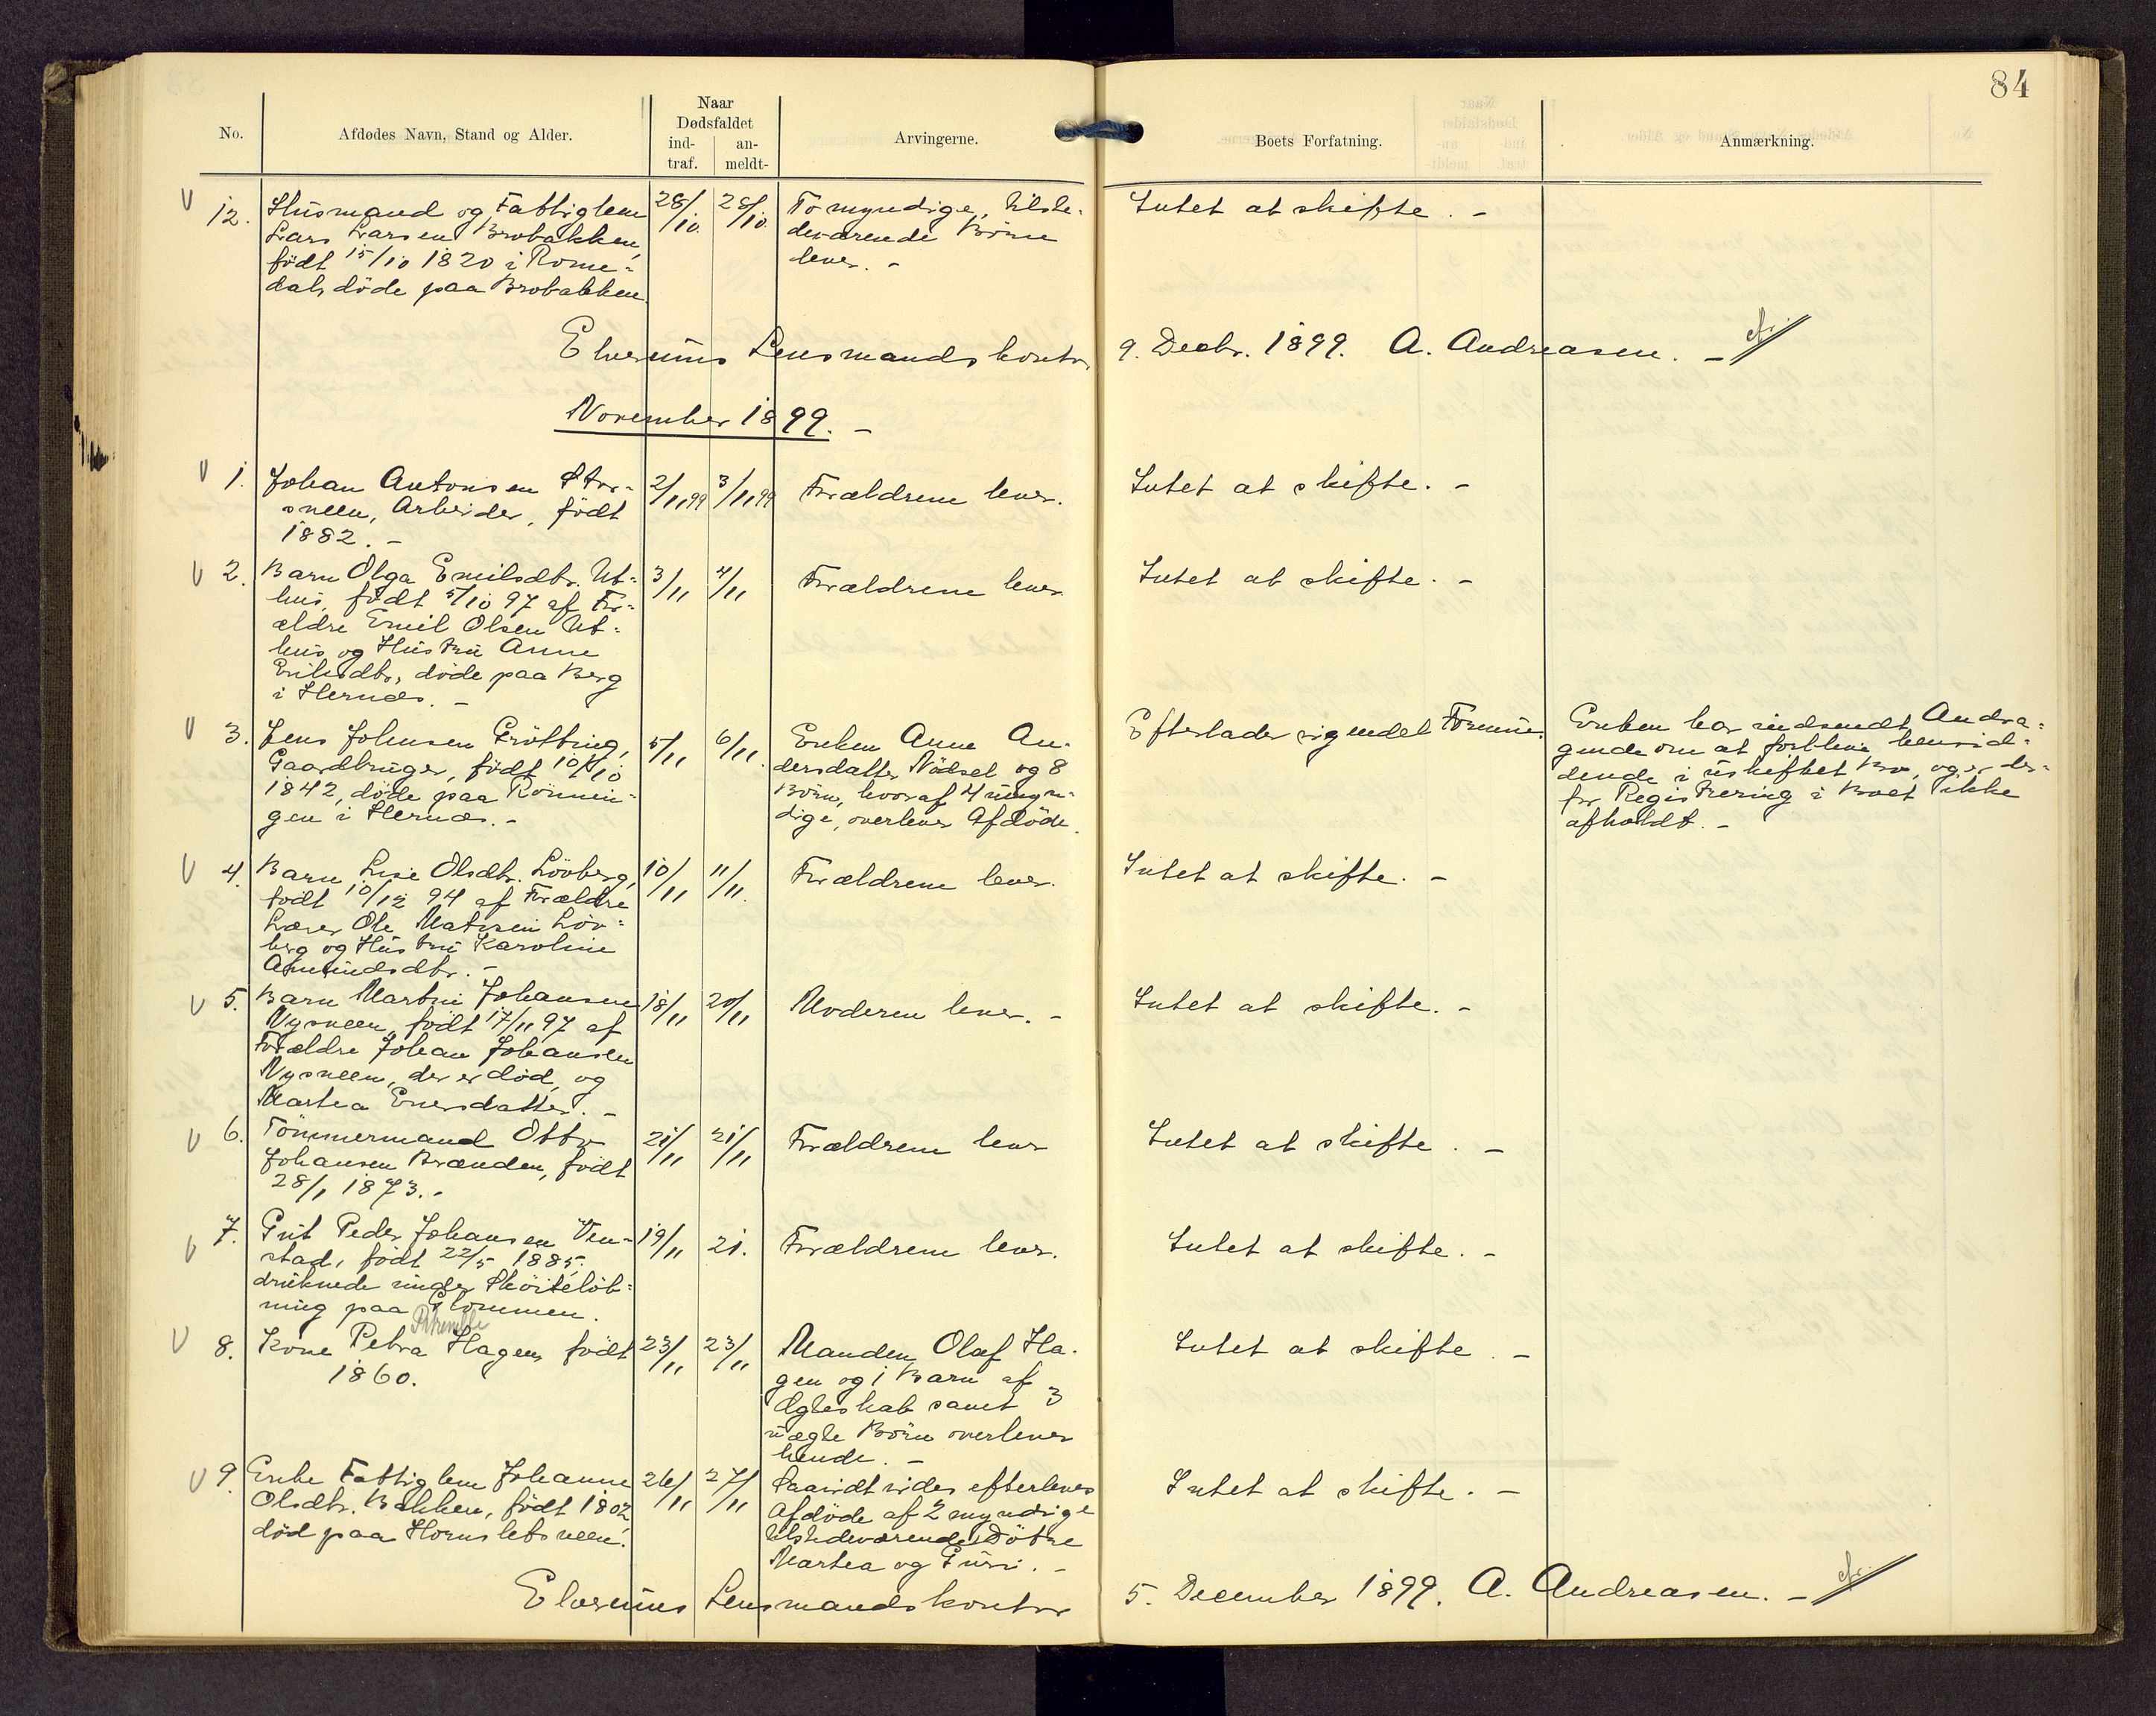 84
No.
Afdødes Navn, Stand og Alder.
Naar
Dødsfaldet
ind-
traf.
an-
meldt-
Arvingerne.
Boets Forfatning.
Anmærkning.
12. Husmand og Fattiglem
Lars Larsen Brobakken,
født 15/10 1820 i Rome-
dal, døde paa Brobakken.
28/10.
28/10.
To myndige, tilste-
deværende Børn
lever. -
Intet at skifte. -
Elverums Lensmandskontor 9. Decbr. 1899. A. Andreasen. -
November 1899. -
1. Johan Antonsen Stor-
sveen, Arbeider, født
1882. -
2/11 99
3/11 99
Forældrene lever.
Intet at skifte. -
2. Barn Olga Emilsdtr. Ut-
hus, født 5/10 97 af For-
ældre Emil Olsen Ut-
hus og Hustru Anne
Eriksdtr., døde paa Berg
i Hernæs. -
3/11
4/11
Forældrene lever
Intet at skifte. -
3. Jens Johnsen Grötting,
Gaardbruger, født 10/10
1842, döde paa Rönnin-
gen i Hernæs. -
5/11
6/11.
Enken Anne An-
dersdatter Nådsel og 8
Börn, hvoraf 4 umyn-
dige, overlever Afdöde.
Efterlader sig endel Formue.
Enken har indsendt Andra-
gende om at forblive hensid-
dende i uskiftet Bo, og er der-
for Registrering i Boet ikke
afholdt. -
4. Barn Lise Olsdtr. Lövberg,
født 10/12 94 af Forældre
Lærer Ole Matisen Löv-
berg og Hustru Karoline
Amundsdtr. -
10/11
11/11.
Forældrene lever.
Intet at skifte. -
5. Barn Martin Johansen
Nysveen, født 17/11 97 af
Forældre Johan Johansen
Nysveen, der er död, og
Martea Enersdatter. -
18/11
20/11
Moderen lever. -
Intet at skifte. -
6. Tömmermand Otto
Johansen Brænden, født
28/1 1873. -
21/11
21/11
Forældrene lever
Intet at skifte. -
7. Gut Peder Johansen Ven-
stad, født 22/5 1885.
druknede under Sköitelöb-
ning paa Glommen.
19/11
21.
Forældrene lever.
Intet at skifte. -
8. Kone Petra Hagen, født
1860.
23/11
23/11
Manden Olaf Ha-
gen og 1 Barn af
Ægteskab samt 3
uægte Börn overlever
hende. -
Intet at skifte. -
9. Enke Fattiglem Johanne
Olsdtr. Bakken, født 1802,
död paa Hornsletsveen.
26/11
27/11
Saavidt vides efterleves
Afdöde af 2 myndige
tilstedeværende Dötre
Martea og Guri. -
Intet at skifte. -
Elverums Lensmandskontor 5. December 1899. A. Andreasen. -